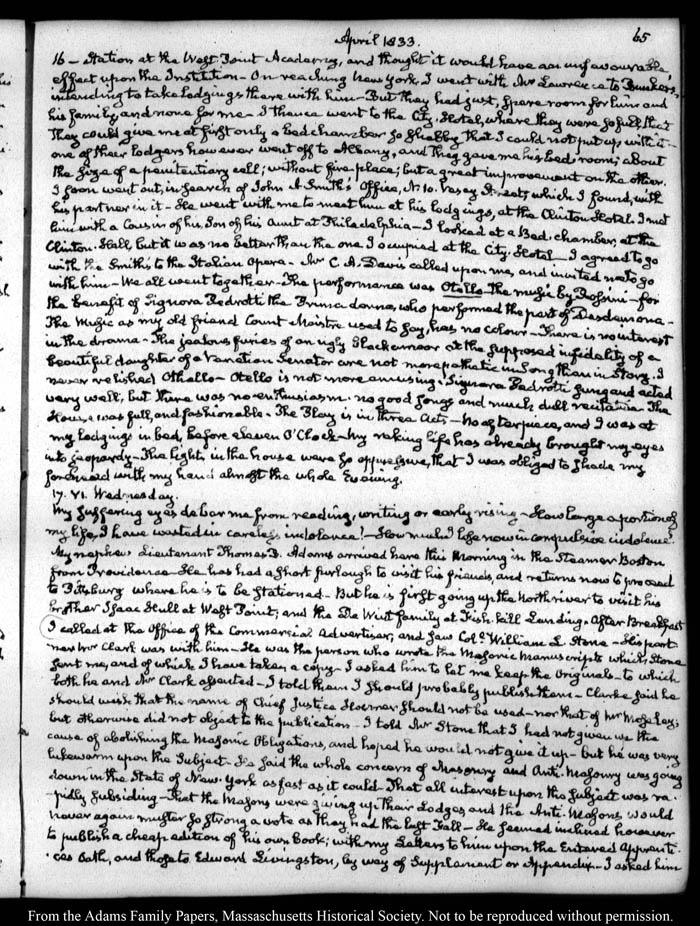 April 1833.
65
16 - Station at the West Point Academy, and thought it would have an unfavourable
effect upon the Institution - On reaching New York, I went with Mr Lawrence to Bunkers,
intending to take Lodgings there with him - But they had just, spare room for him and
his family, and none for me - I thence went to the City Hotel, where they were so full that
They could give me at first only a bed chamber so shabby that I could not put up with it -
one of their lodgers however went off to Albany, and they gave me his bed room; about
the size of a penitentiary cell; without fire-place; but a great improvement on the other.
I soon went out, in search of John A Smith's Office, N. 10. Vesey Street, which I found, with
his partner in it - He went with me to meet him at his lodgings, at the Clinton Hotel. I met
him with a Cousin of his, Son of his Aunt at Philadelphia - I looked at a Bed-chamber, at the
Clinton-Hall, but it was no better than the one I occupied at the City Hotel - I agreed to go
with the Smiths to the Italian Opera - Mr C. A. Davis called upon me, and invited me to go
with him - We all went together - The performance was Otello the music by Rossini - for
the benefit of Signora Pedrotti the Prima donna, who performed the part of Desdemona -
The Music as my old friend Count Maistre used to say, has no colour - There is no interest
in the drama - The jealous furies of an ugly Blackamoor at the supposed infidelity of a
beautiful daughter of a Venetian Senator are not more pathetic in Song than in Story. I
never relished Othello - Otello is not more amusing. Signora Pedrotti sung and acted
very well; but there was no enthusiasm. no good songs and much dull recitative - The
House was full, and fashionable - The Play is in three Acts - No afterpiece, and I was at
my lodgings in bed, before eleven O'Clock - My raking life has already brought my eyes
into jeopardy - The lights in the house were so oppressive, that I was obliged to shade my
forehead with my hand almost the whole Evening.
17. VI. Wednesday.
My suffering eyes debar me from reading, writing or early rising - How large a portion of
my life, I have wasted in careless indolence! - How much I lose now in compulsive indolence!
My nephew Lieutenant Thomas B. Adams arrived here this Morning in the Steamer Boston
from Providence - He has had a short furlough to visit his friends, and returns now to proceed
to Pittsburg where he is to be Stationed - But he is first going up the North river to visit his
brother Isaac Hull at West Point; and the De Wint family at Fish-kill Landing. After Breakfast
I called at the Office of the Commercial Advertiser, and saw Col. William L. Stone - His part-
ner Mr Clark was with him - He was the person who wrote the Masonic Manuscripts which Stone
sent me, and of which I have taken a copy - I asked him to let me keep the Originals - to which
both he and Mr Clark assented - I told them I should probably publish them - Clarke said he
should wish that the name of Chief Justice Hosmer should not be used - nor that of Mr Moseley;
but otherwise did not object to the publication - I told Mr Stone that I had not given up the
cause of abolishing the Masonic Obligations, and hoped he would not give it up - but he was very
lukewarm upon the Subject - He said the whole concern of Masonry and Anti-Masonry was going
down in the State of New-York as fast as it could - That all interest upon the Subject was ra-
pidly subsiding - That the Masons were giving up their Lodges and the Anti-Masons would
never again muster so strong a vote as they had the last Fall - He seemed inclined however
to publish a cheap edition of his own book; with my Letters to him upon the Entered Apprenti-
ces Oath, and those to Edward Livingston, by way of Supplement or Appendix - I asked him
From the Adams Family Papers, Massachusetts Historical Society. Not to be reproduced without permission.